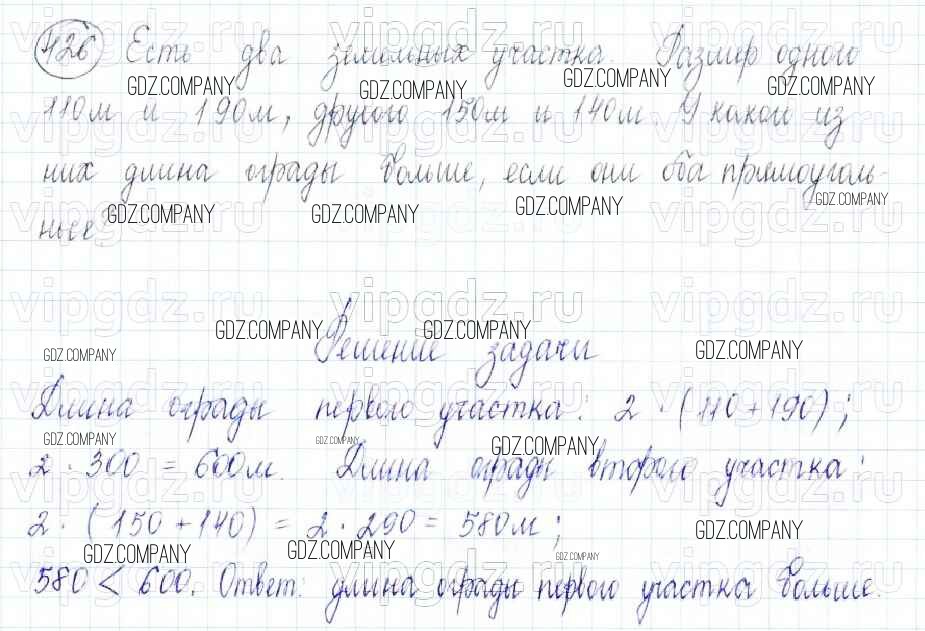 426 Есть два земельных участка. Размер одного
110м и 190м, другого 150м и 140м. У какого из
них длина ограды больше, если они оба прямоуголь-
ные.
Решение задачи
Длина ограды первого участка: 2 · (110 + 190);
2 · 300 = 600м. Длина ограды второго участка:
2 · (150 + 140) = 2 · 290 = 580м;
580 < 600. Ответ: длина ограды первого участка больше.
vipgdz.ru
GDZ.COMPANY